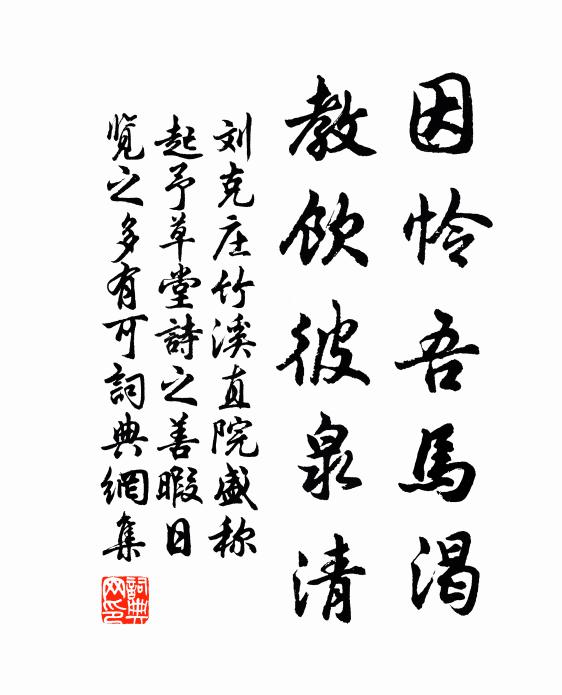 因怜吾馬渴
教飲彼泉清
刘克庄竹溪直院盛称
起予草堂詩之善暇日
览之多有可詞典網集
詞典网印